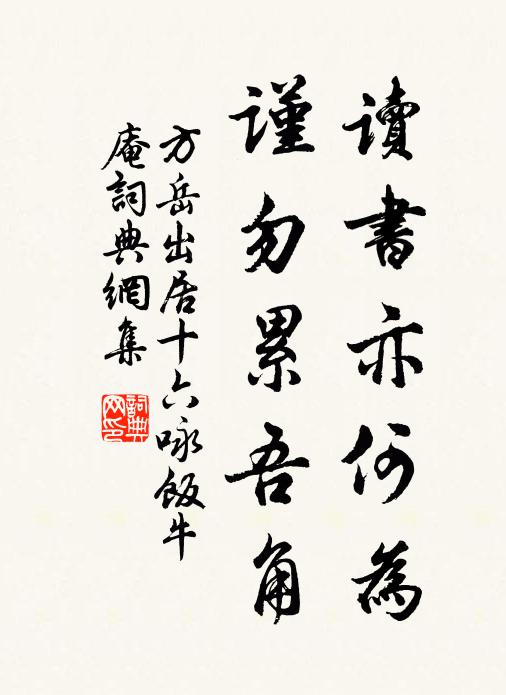 讀書亦何為
謹勿累吾角
方岳出居十六咏飯牛
庵詞典網集
詞典
网印